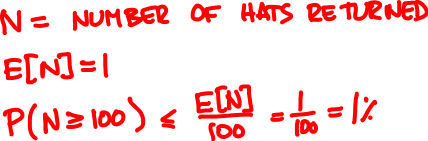 N = NUMBER OF HATS RETURNED
E[N]=1
P(N≥100) ≤ E[N]/100 = 1/100 = 1%